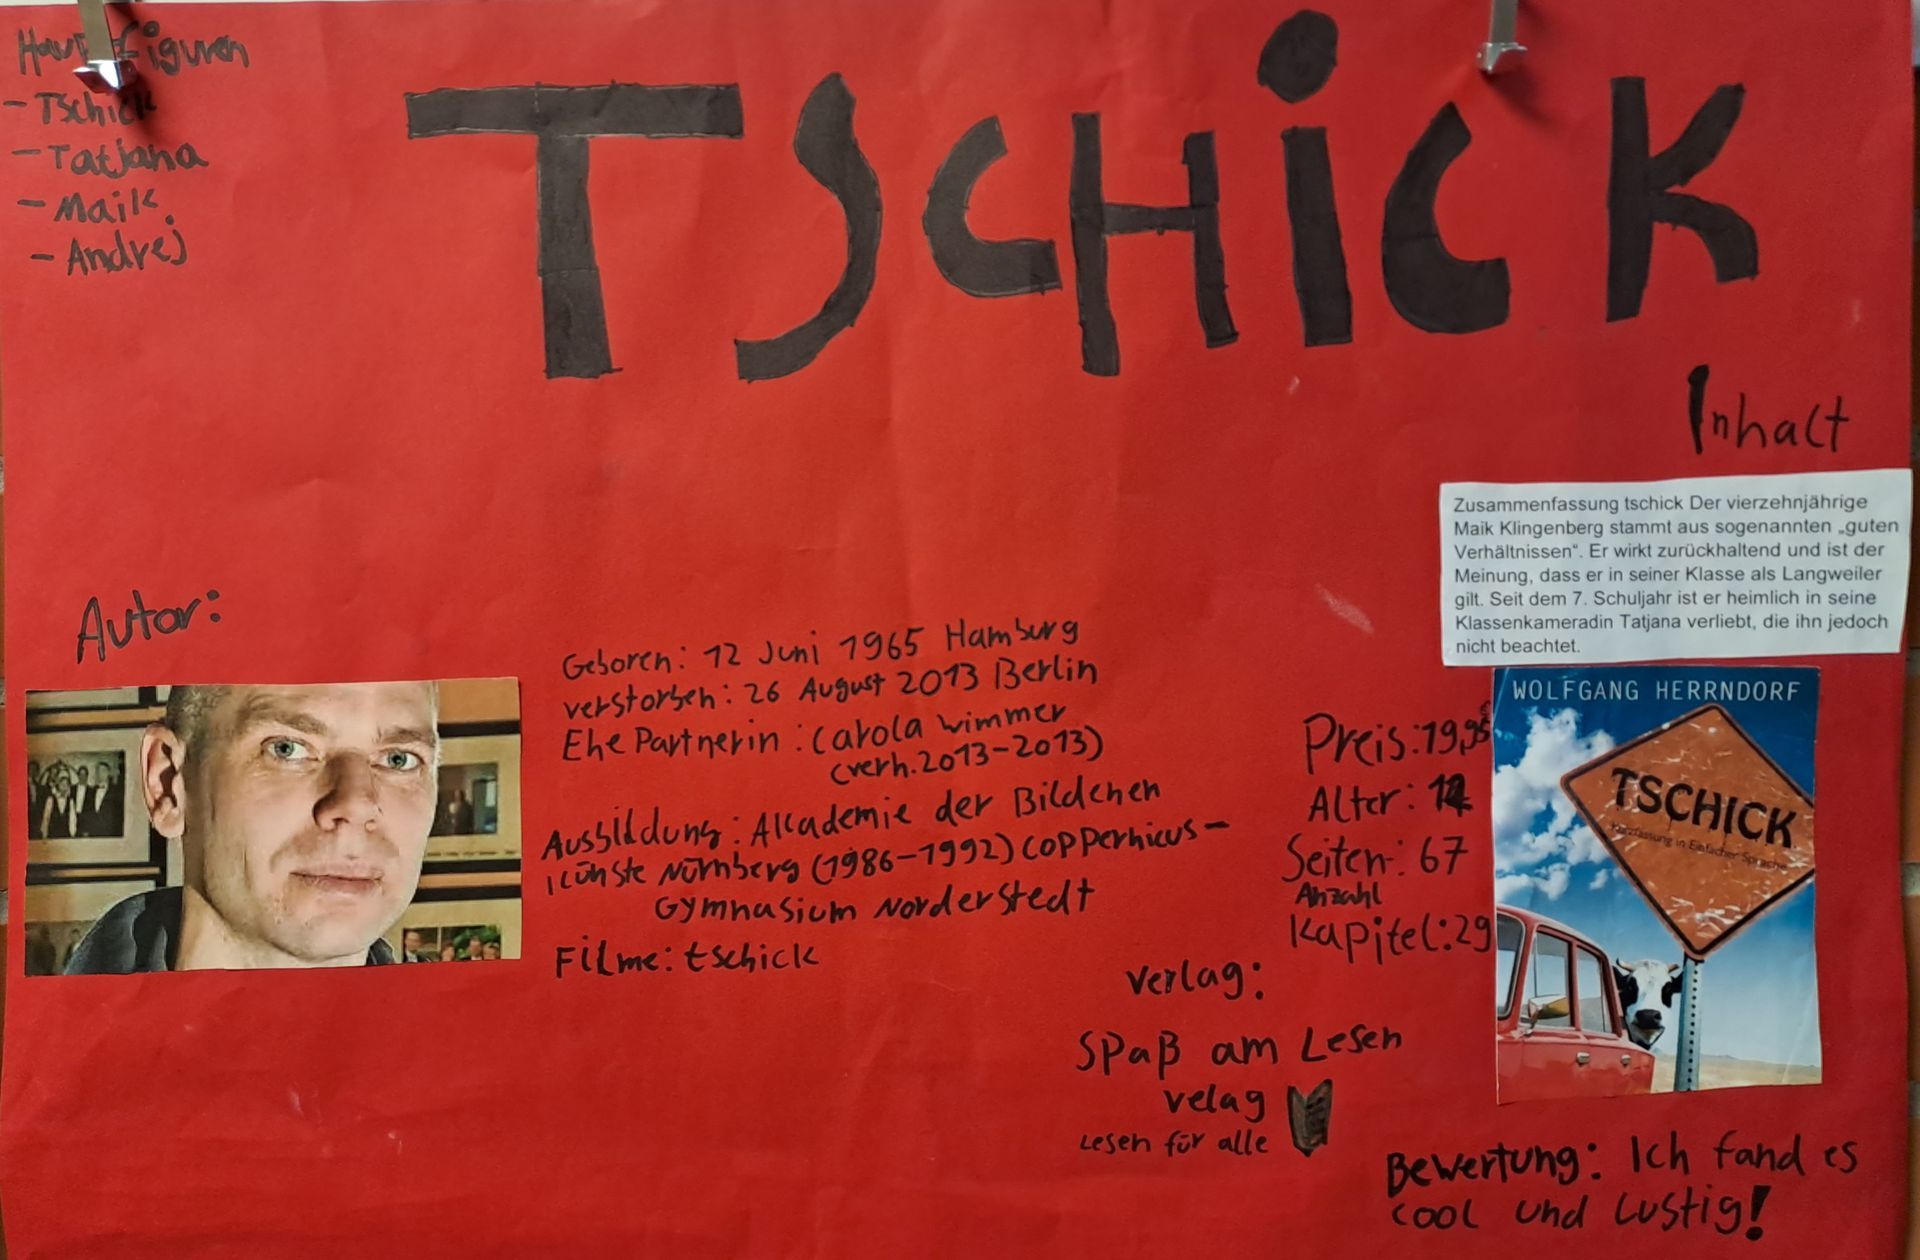 Hauptfiguren
- Tschick
- Tatjana
- Maik
- Andrej
TSCHiCK
Inhalt
Zusammenfassung tschick Der vierzehnjährige
Maik Klingenberg stammt aus sogenannten „guten
Verhältnissen“. Er wirkt zurückhaltend und ist der
Meinung, dass er in seiner Klasse als Langweiler
gilt. Seit dem 7. Schuljahr ist er heimlich in seine
Klassenkameradin Tatjana verliebt, die ihn jedoch
nicht beachtet.
Autor:
Geboren: 12 Juni 1965 Hamburg
verstorben: 26 August 2013 Berlin
Ehe Partnerin: Carola Wimmer
(verh. 2013-2013)
Ausbildung: Akademie der Bildenen
künste Nürnberg (1986-1992) Coppernicus-
Gymnasium Norderstedt
Filme: tschick
Preis: 19,95€
Alter:
Seiten: 67
Anzahl
Kapitel: 29
WOLFGANG HERRNDORF
TSCHICK
Kurzfassung in Einfacher Sprache
verlag:
Spaß am Lesen
velag
Lesen für alle
Bewertung: Ich fand es
cool und Lustig!